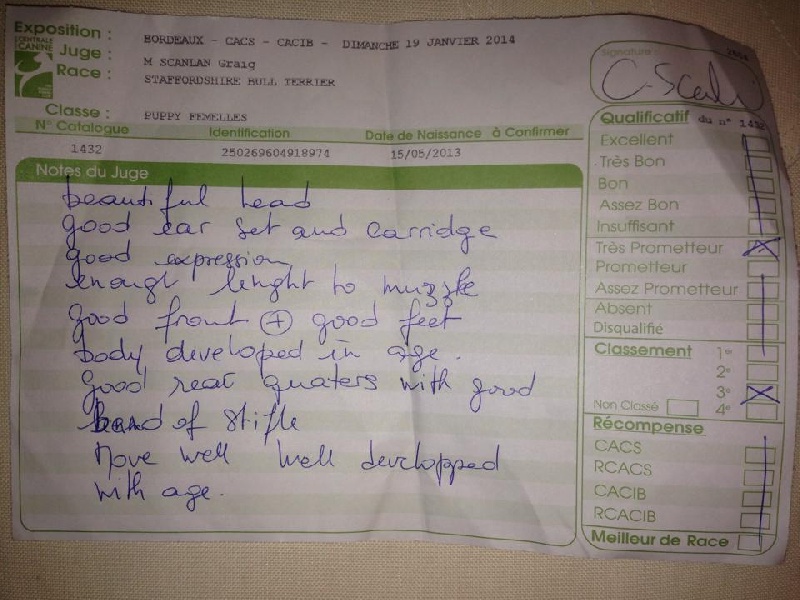 Exposition : BORDEAUX - CACS - CACIB - DIMANCHE 19 JANVIER 2014
CENTRALE CANINE
Juge : M SCANLAN Graig
Race : STAFFORDSHIRE BULL TERRIER
Classe : PUPPY FEMELLES
N° Catalogue Identification Date de Naissance à Confirmer
1432 250269604918974 15/05/2013
Notes du Juge
beautiful head
good ear set and carridge
good expression
enought lenght to muzzle
good front + good feet
body developed in age.
good rear quaters with good
bend of stifle
move well well developped
with age.
Signature
Qualificatif du n° 1432
Excellent
Très Bon
Bon
Assez Bon
Insuffisant
Très Prometteur
Prometteur
Assez Prometteur
Absent
Disqualifié
Classement 1er
2e
3e
Non Classé 4e
Récompense
CACS
RCACS
CACIB
RCACIB
Meilleur de Race